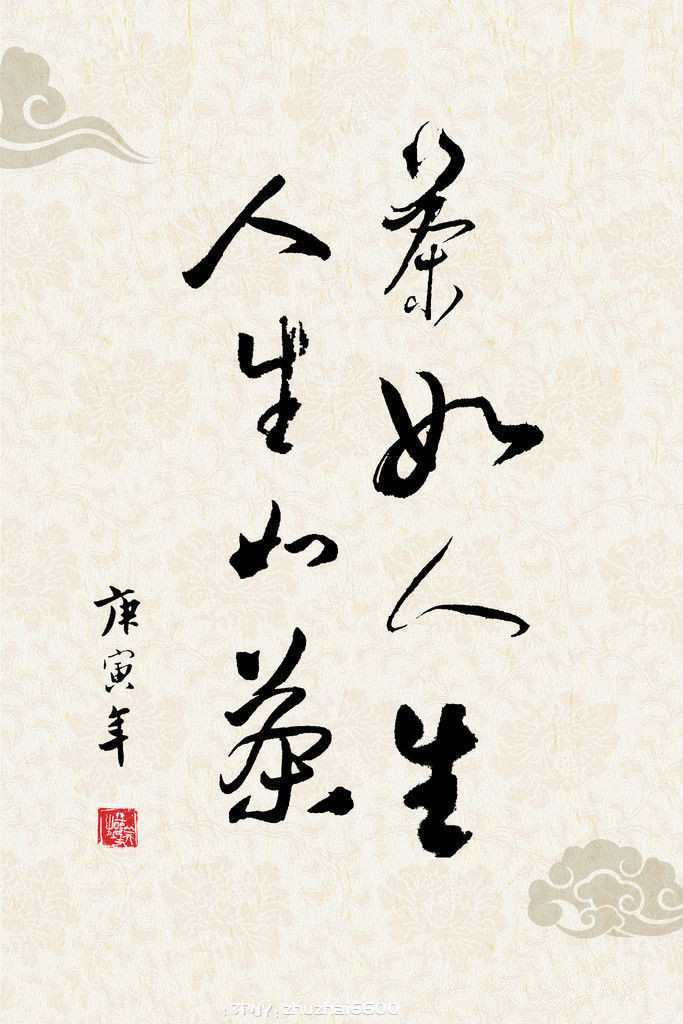 茶如人生
人生如茶
庚寅年
zhuzhai5500